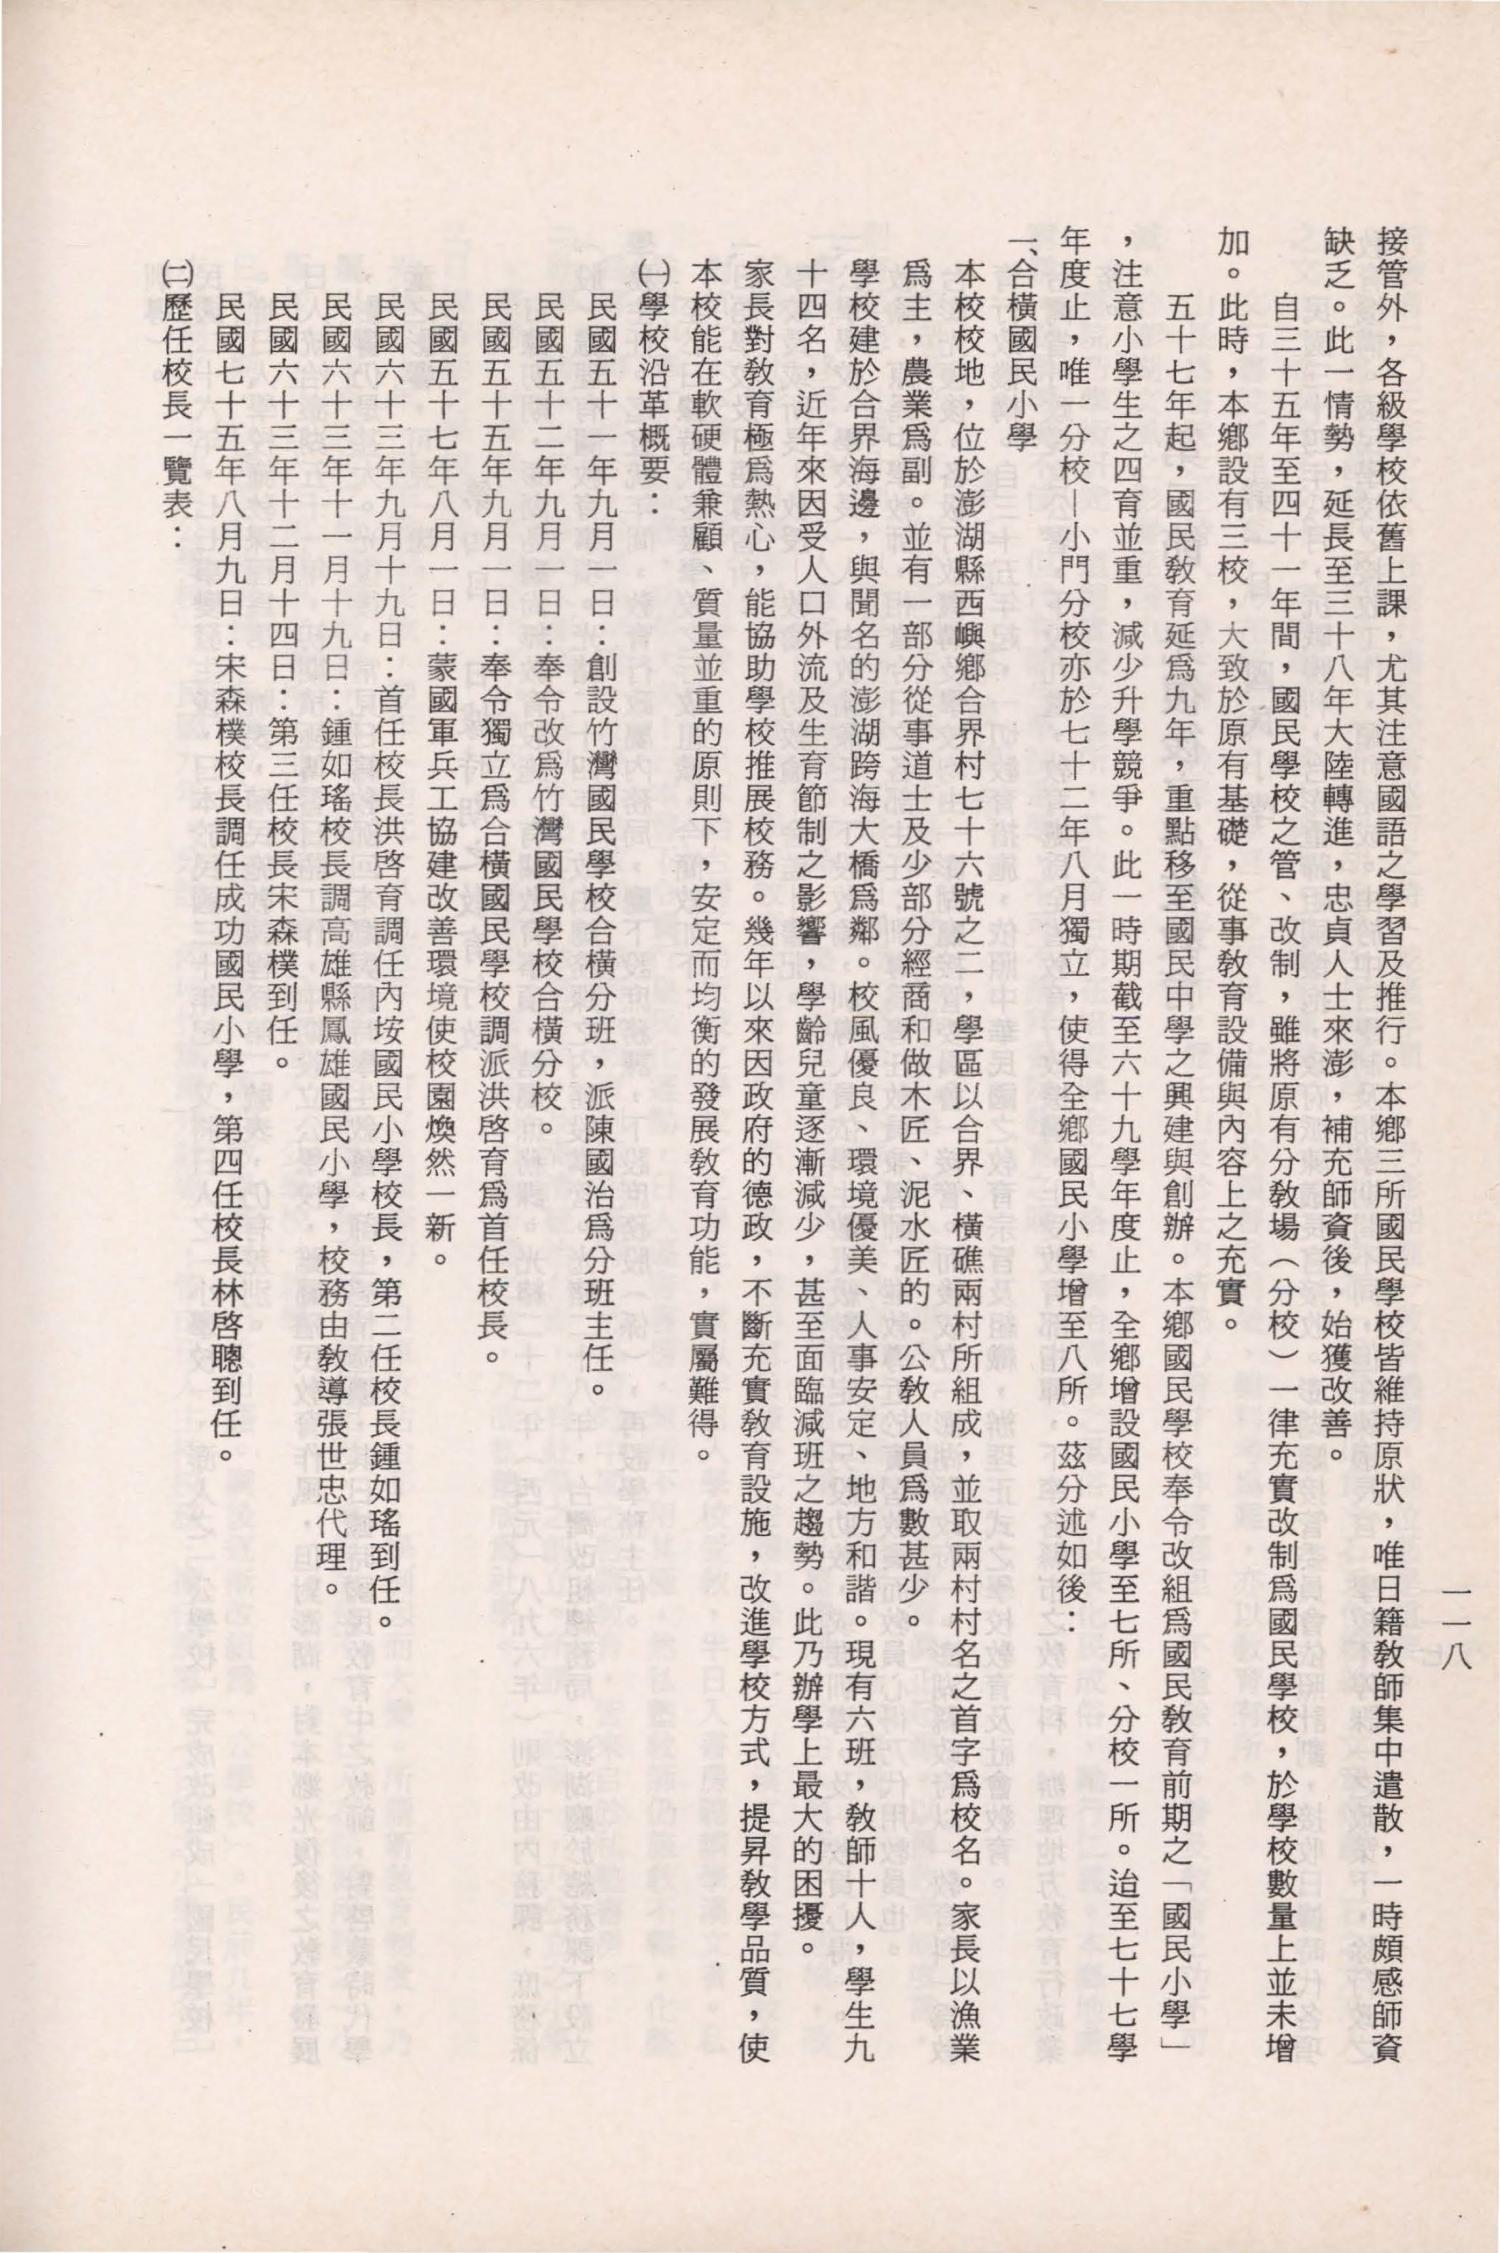 接管外，各級學校依舊上課，尤其注意國語之學習及推行。本鄉三所國民學校皆維持原狀，唯日籍教師集中遣散，一時頗感師資
缺乏。此一情勢，延長至三十八年大陸轉進，忠貞人士來澎，補充師資後，始獲改善。
自三十五年至四十一年間，國民學校之管、改制，雖將原有分教場（分校）一律充實改制爲國民學校，於學校數量上並未增
加。此時，本鄉設有三校，大致於原有基礎，從事教育設備與內容上之充實。
五十七年起，國民教育延爲九年，重點移至國民中學之興建與創辦。本鄉國民學校奉令改組爲國民教育前期之「國民小學」
，注意小學生之四育並重，減少升學競爭。此一時期截至六十九學年度止，全鄉增設國民小學至七所、分校一所。迨至七十七學
年度止，唯一分校—小門分校亦於七十二年八月獨立，使得全鄉國民小學增至八所。茲分述如後：
一、合橫國民小學
本校校地，位於澎湖縣西嶼鄉合界村七十六號之二，學區以合界、橫礁兩村所組成，並取兩村村名之首字爲校名。家長以漁業
爲主，農業爲副。並有一部分從事道士及少部分經商和做木匠、泥水匠的。公教人員爲數甚少。
學校建於合界海邊，與聞名的澎湖跨海大橋爲鄰。校風優良、環境優美、人事安定、地方和諧。現有六班，教師十人，學生九
十四名，近年來因受人口外流及生育節制之影響，學齡兒童逐漸減少，甚至面臨減班之趨勢。此乃辦學上最大的困擾。
家長對教育極爲熱心，能協助學校推展校務。幾年以來因政府的德政，不斷充實教育設施，改進學校方式，提昇教學品質，使
本校能在軟硬體兼顧、質量並重的原則下，安定而均衡的發展教育功能，實屬難得。
㈠學校沿革概要：
民國五十一年九月一日：創設竹灣國民學校合橫分班，派陳國治爲分班主任。
民國五十二年九月一日：奉令改爲竹灣國民學校合橫分校。
民國五十五年九月一日：奉令獨立爲合橫國民學校調派洪啓育爲首任校長。
民國五十七年八月一日：蒙國軍兵工協建改善環境使校園煥然一新。
民國六十三年九月十九日：首任校長洪啓育調任內垵國民小學校長，第二任校長鍾如瑤到任。
民國六十三年十一月十九日：鍾如瑤校長調高雄縣鳳雄國民小學，校務由教導張世忠代理。
民國六十三年十二月十四日：第三任校長宋森樸到任。
民國七十五年八月九日：宋森樸校長調任成功國民小學，第四任校長林啓聰到任。
㈡歷任校長一覽表：
一一八